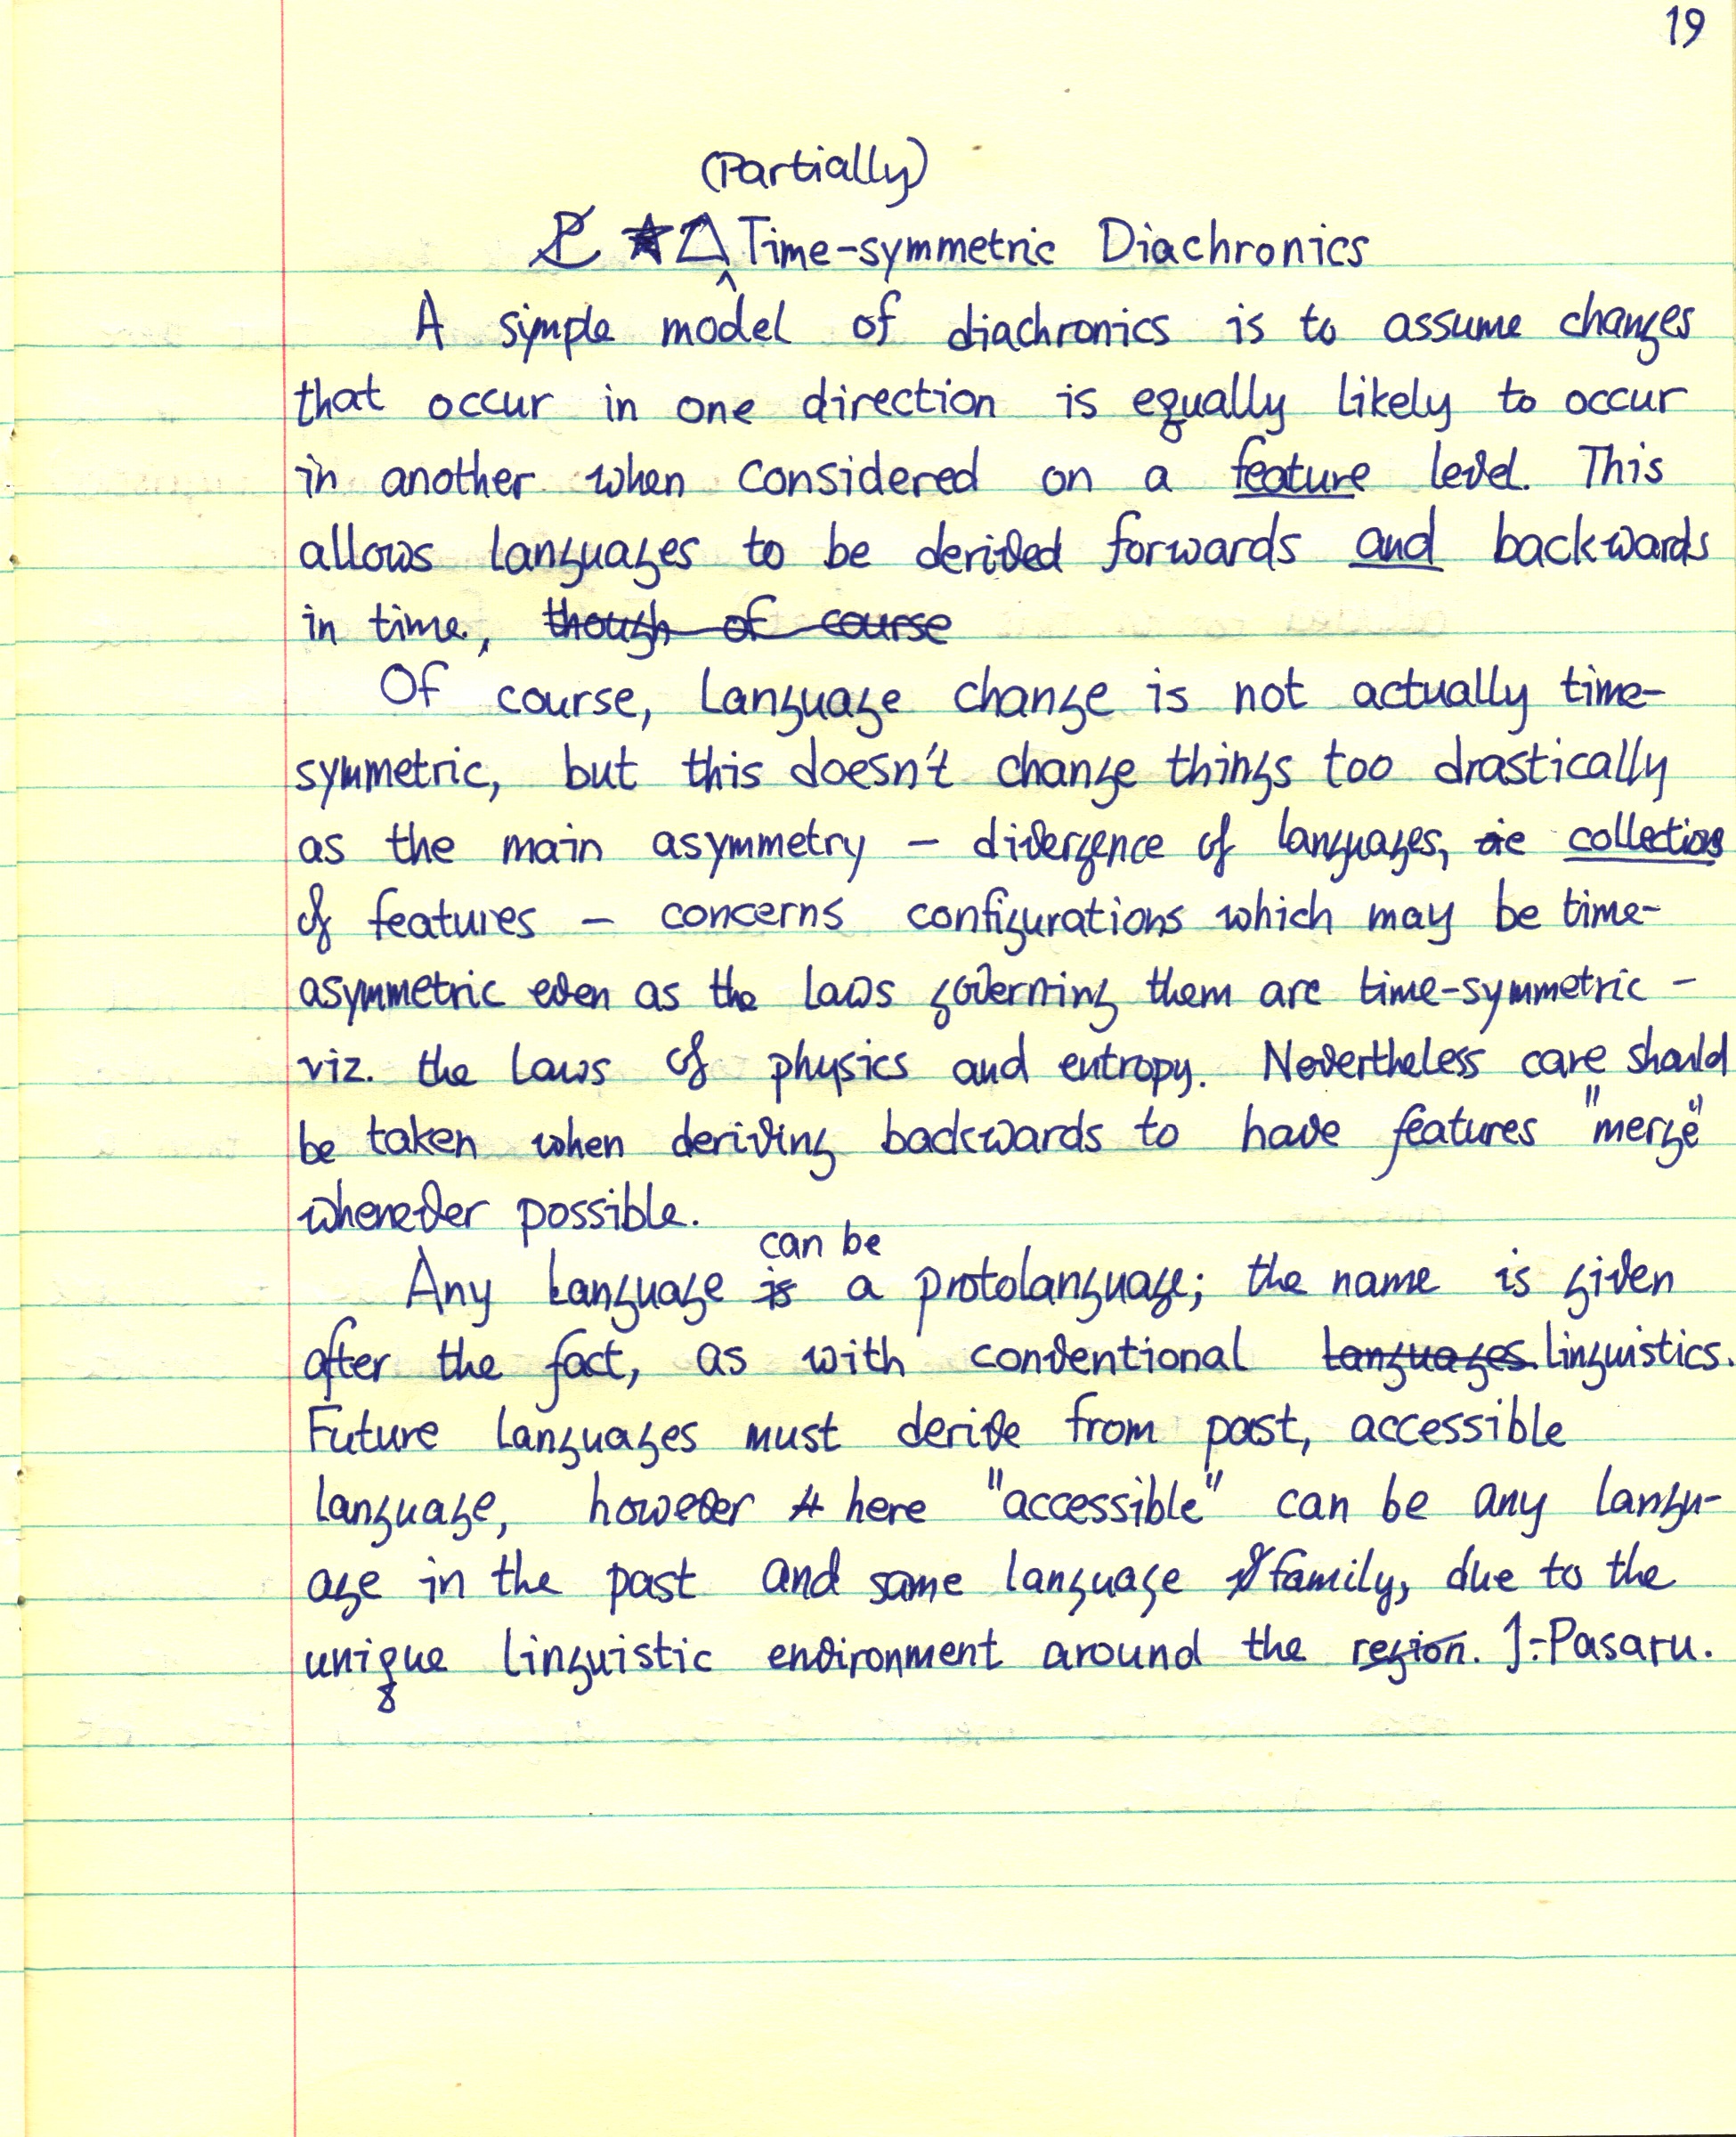 19
(Partially)
Time-symmetric Diachronics
A simple model of diachronics is to assume changes
that occur in one direction is equally likely to occur
in another when considered on a feature level. This
allows languages to be derived forwards and backwards
in time, though of course
Of course, language change is not actually time-
symmetric, but this doesn't change things too drastically
as the main asymmetry – divergence of languages, ie collections
of features – concerns configurations which may be time-
asymmetric even as the laws governing them are time-symmetric –
viz. the laws of physics and entropy. Nevertheless care should
be taken when deriving backwards to have features "merge"
whenever possible.
can be
Any language is a protolanguage; the name is given
after the fact, as with conventional languages. linguistics.
Future languages must derive from past, accessible
language, however here "accessible" can be any langu-
age in the past and same language family, due to the
unique linguistic environment around the region. J:-Pasaru.